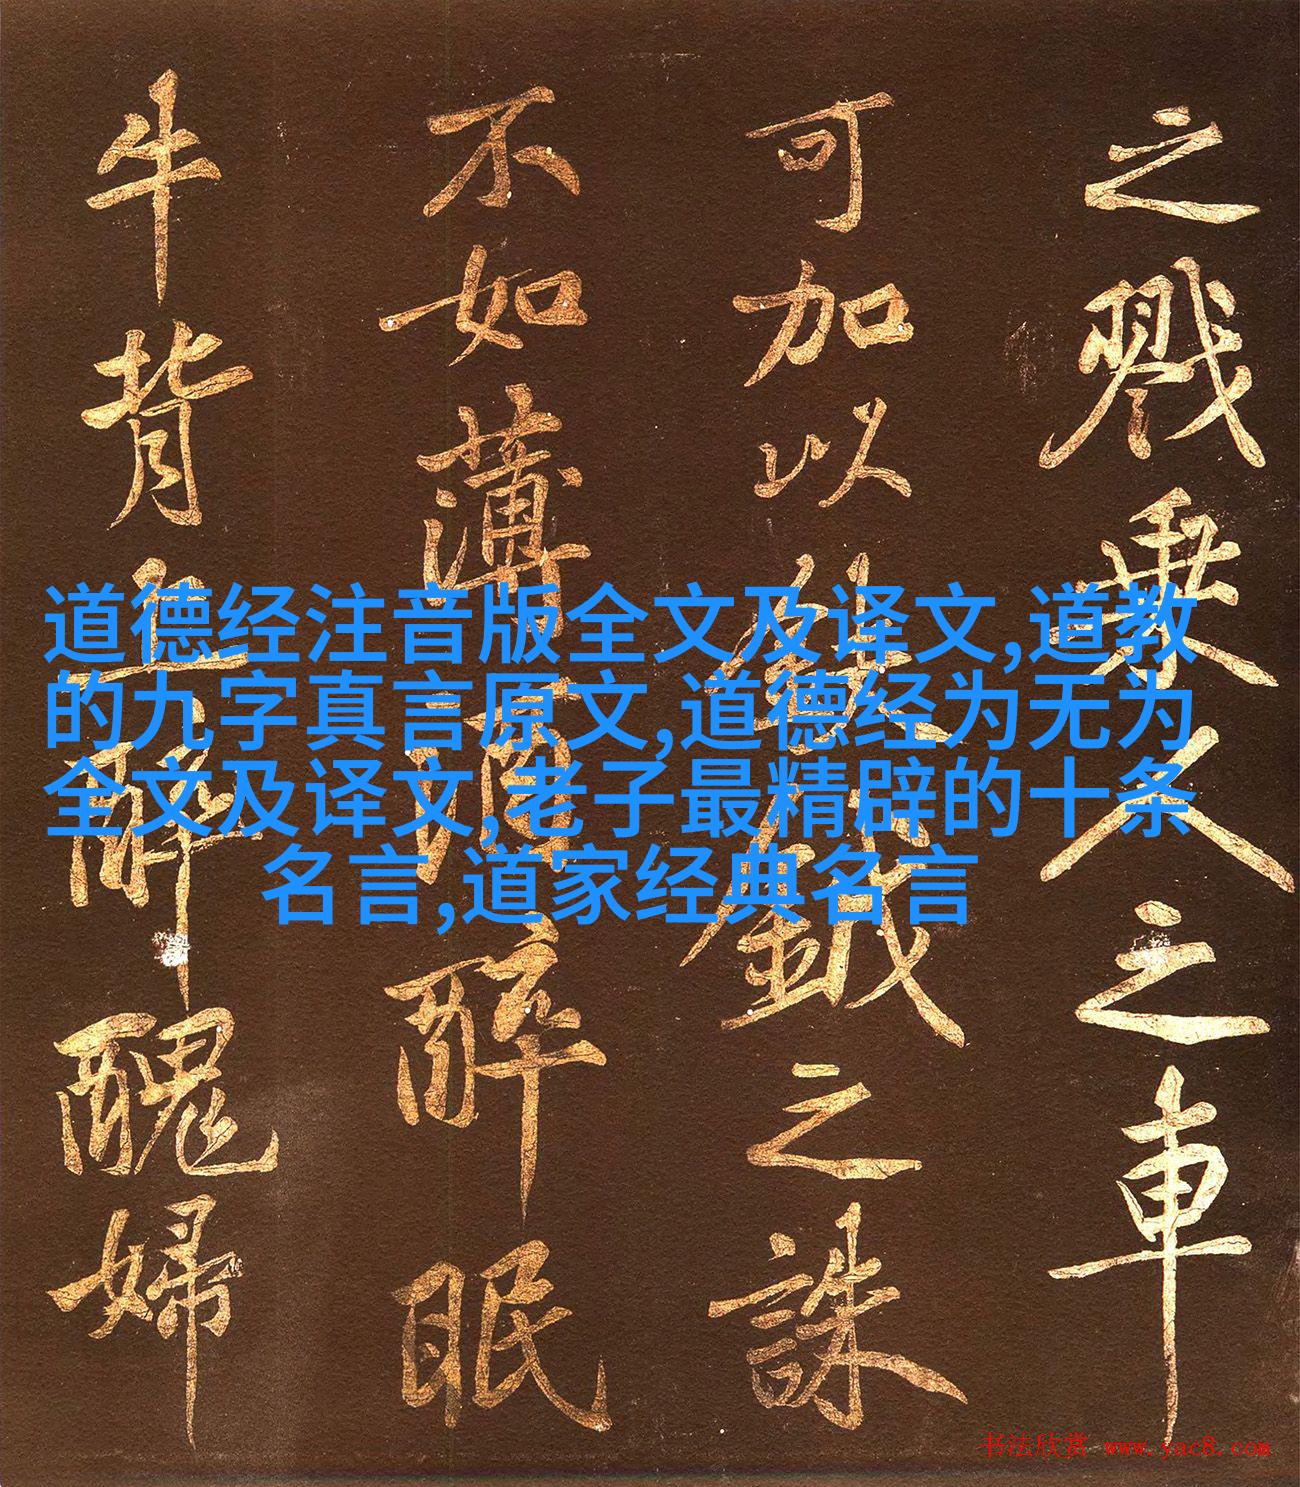 之戮乘人之車
可加以鈇鉞之誅
不如蒲醉眠
牛背上醉醜婦
道德经注音版全文及译文,道教
的九字真言原文,道德经为无为
全文及译文,老子最精辟的十条
名言,道家经典名言
书法欣赏 www.yac8.com